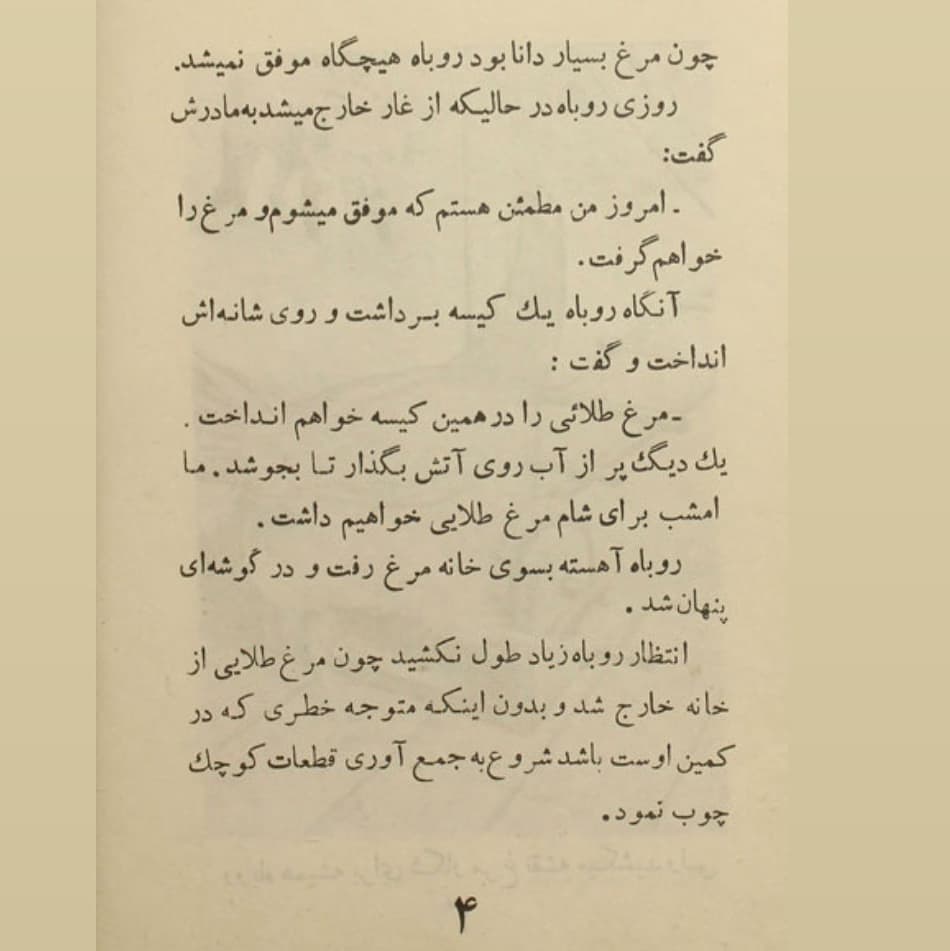 چون مرغ بسیار دانا بود روباه هیچگاه موفق نمیشد.
روزی روباه در حالیکه از غار خارج میشد به مادرش
گفت:
ـ امروز من مطمئن هستم که موفق میشوم و مرغ را
خواهم گرفت.
آنگاه روباه یك کیسه بـرداشت و روی شانه‌اش
انداخت و گفت :
ـ مرغ طلائی را در همین کیسه خواهم انـداخت .
یك دیگ پر از آب روی آتش بگذار تـا بجوشد. مـا
امشب برای شام مرغ طلایی خواهیم داشت.
روباه آهسته بسوی خانه مرغ رفت و در گوشه‌ای
پنهان شد .
انتظار روباه زیاد طول نکشید چون مرغ طلایی از
خانه خارج شد و بدون اینکـه متوجه خطـری کـه در
کمین اوست باشد شروع به جمـع آوری قطعات کوچك
چوب نمود.
۴